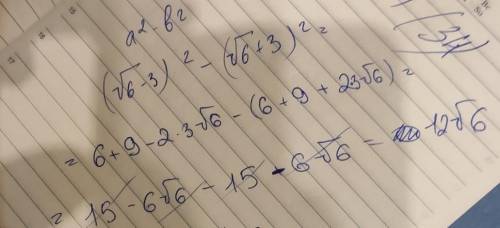 a² - b²
(√6-3)² - (√6+3)² =
= 6+9-2·3√6 - (6+9+2·3√6) =
= 15 - 6√6 - 15 - 6√6 = -12√6